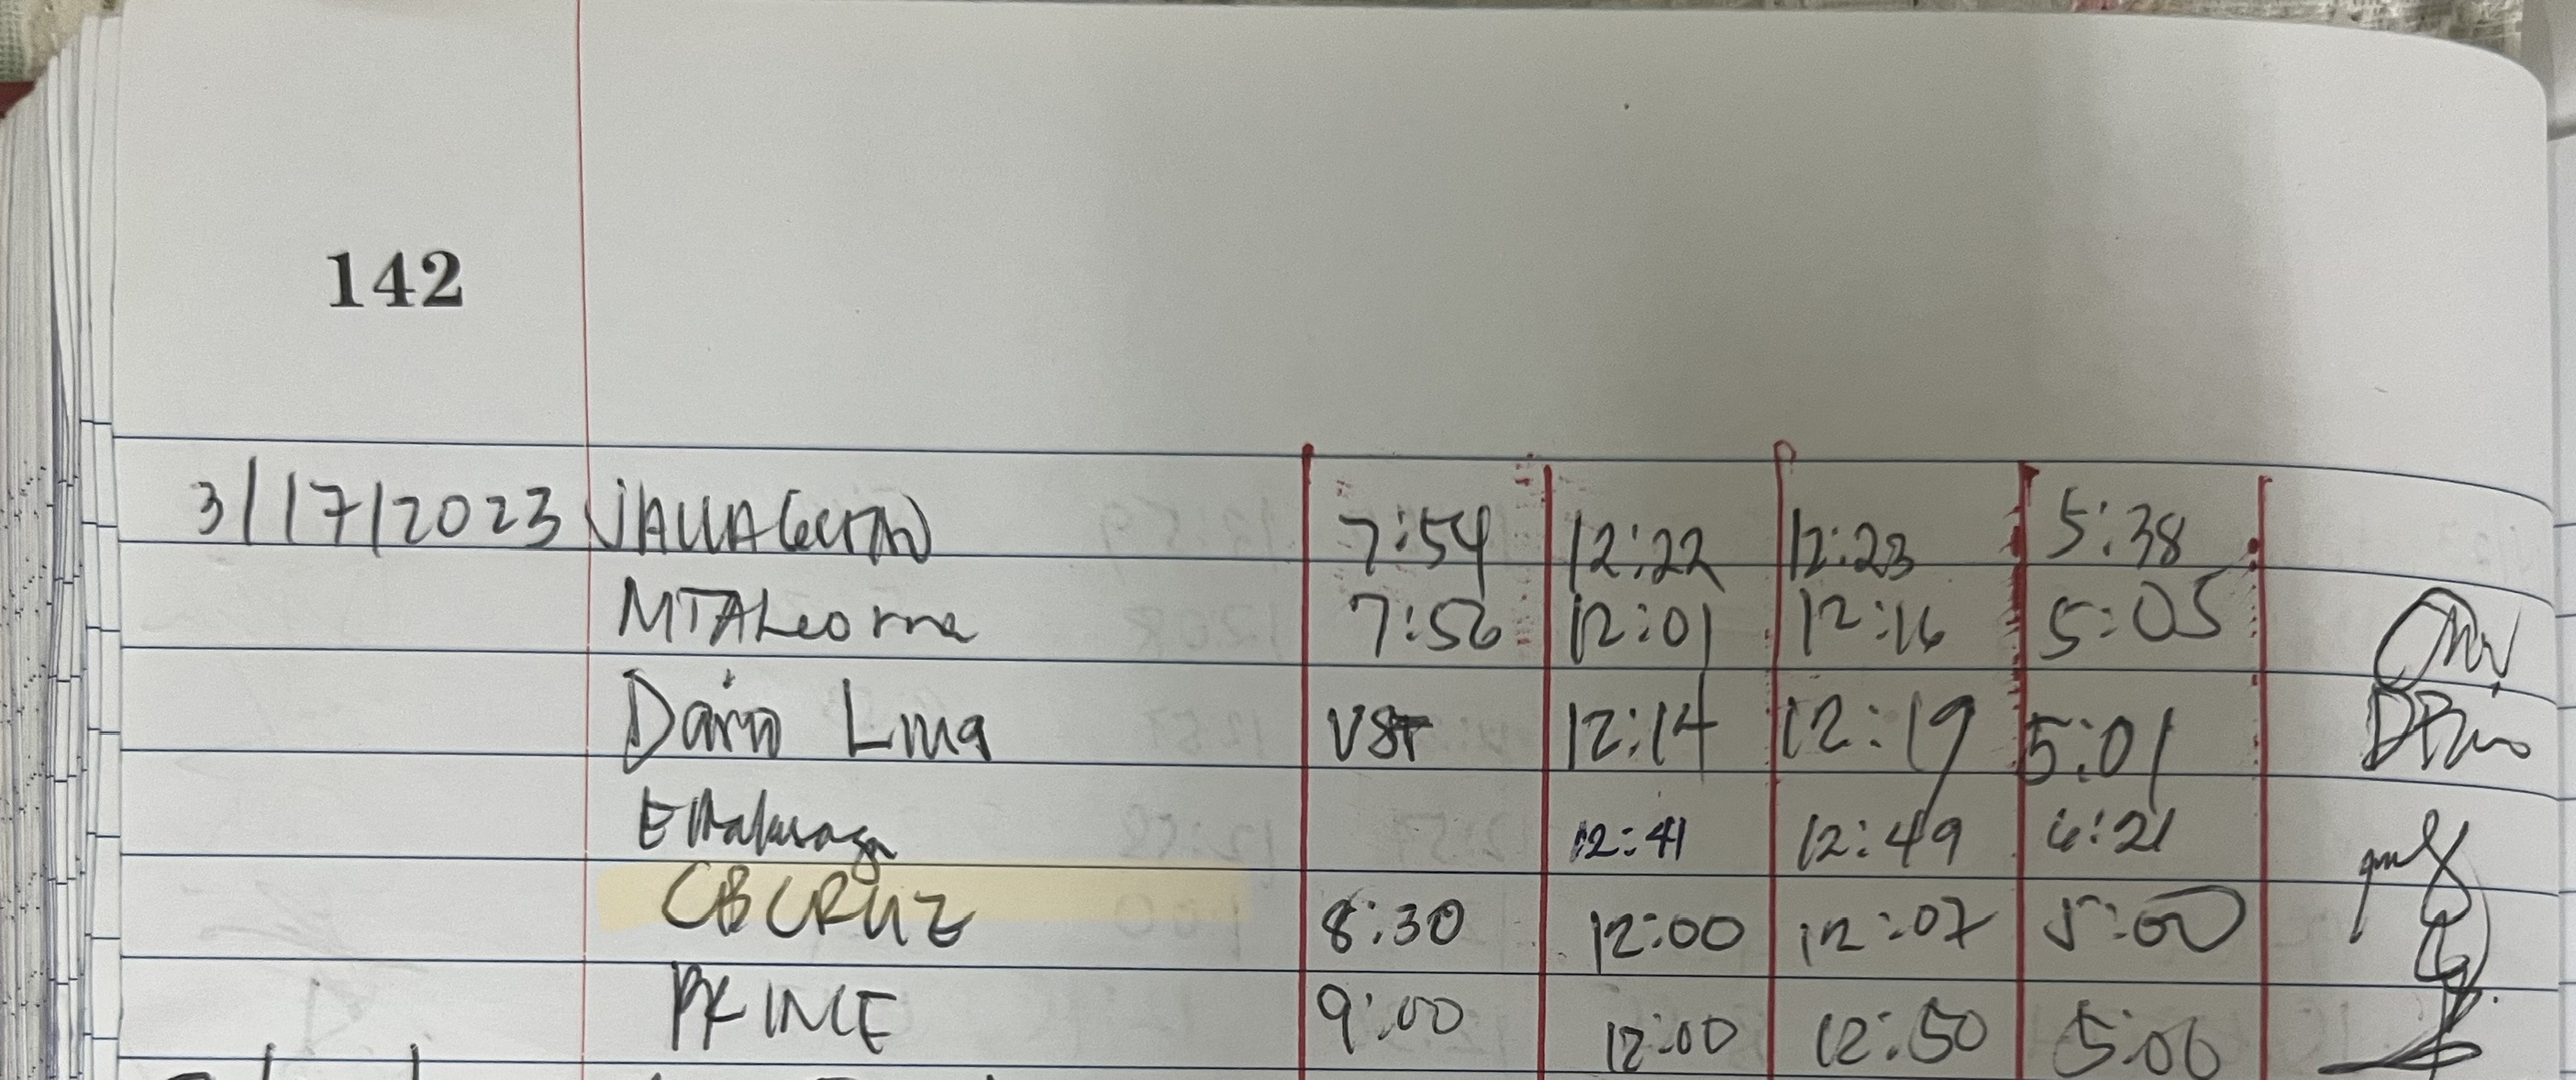 142
3/17/2023 7:54 12:22 12:23 5:38
MTALeorna 7:56 12:01 12:16 5:05
Dario Lina VST 12:14 12:19 5:01
12:41 12:49 6:21
CBCRUZ 8:30 12:00 12:07 5:00
9:00 12:00 12:50 5:06